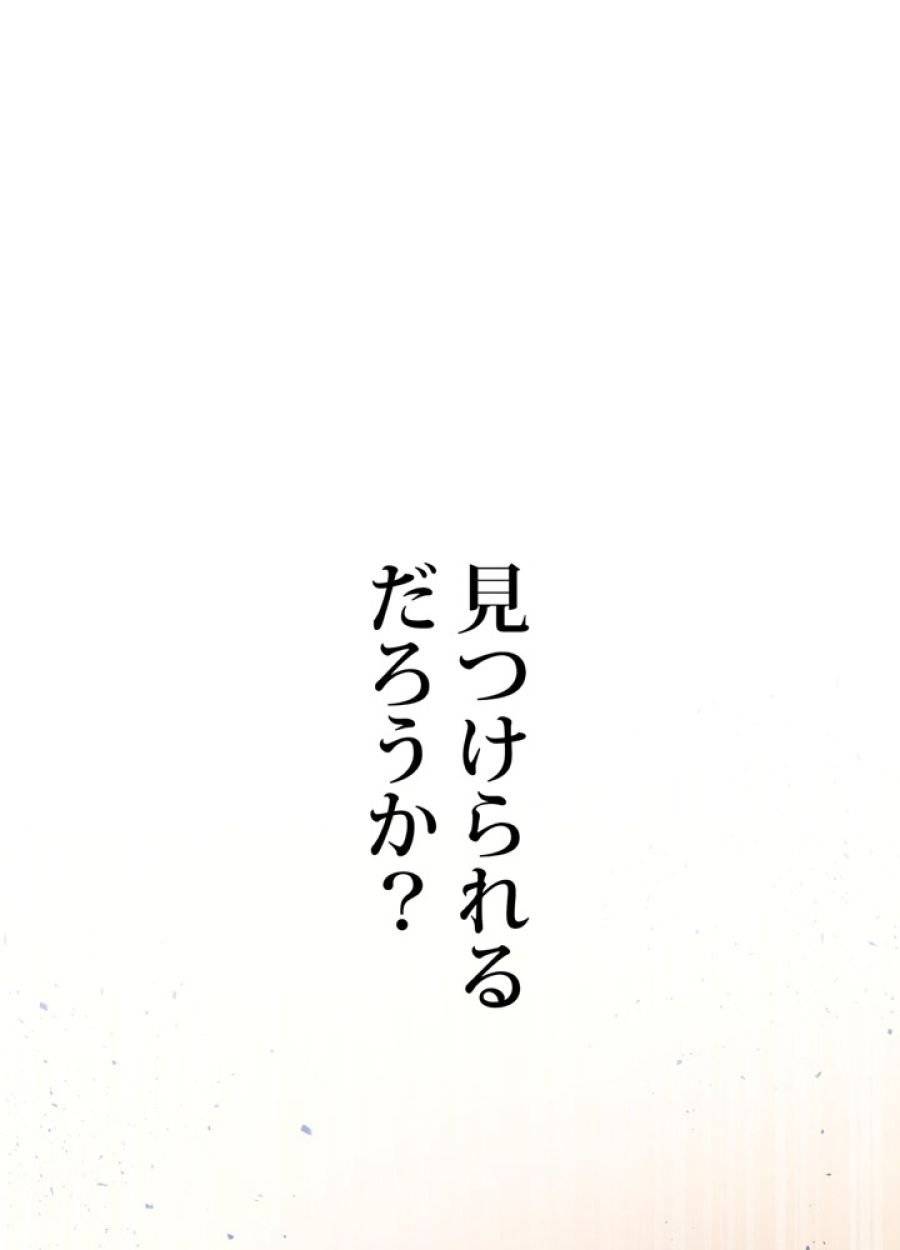 見つけられる
だろうか？